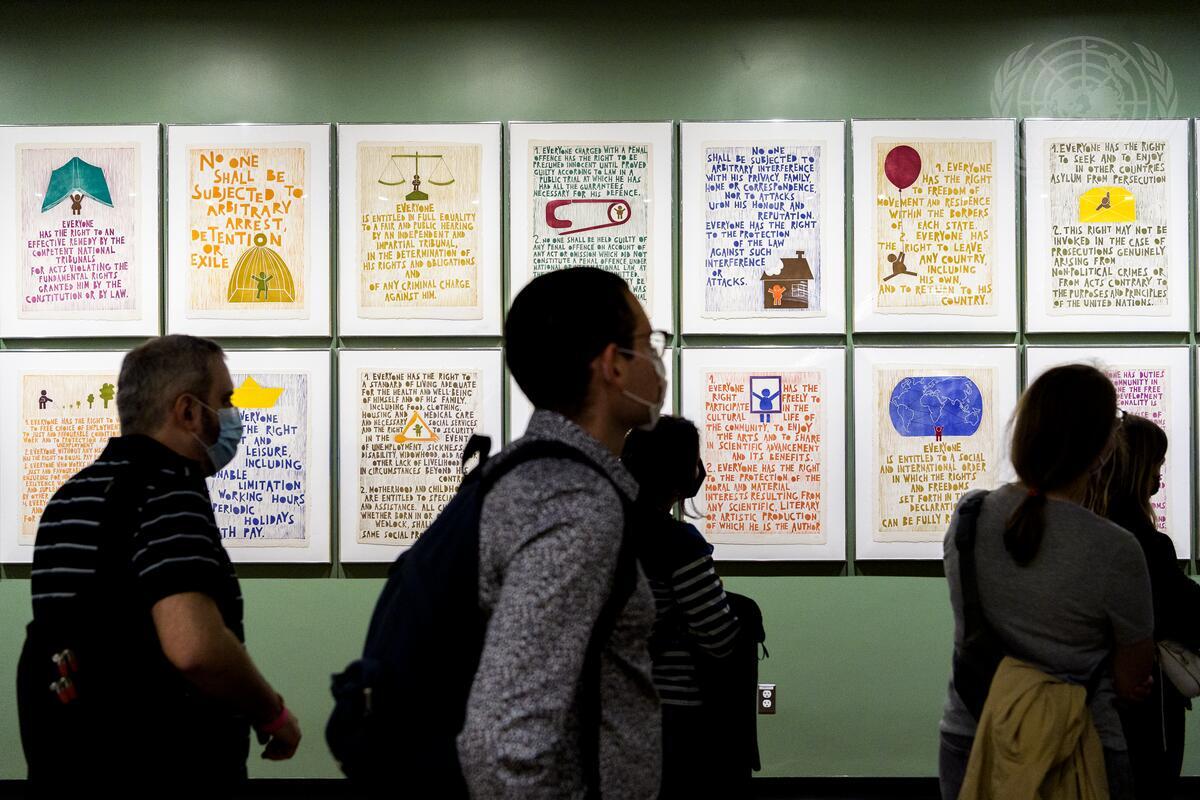 EVERYONE
HAS THE RIGHT TO AN
EFFECTIVE REMEDY BY THE
COMPETENT NATIONAL
TRIBUNALS
FOR ACTS VIOLATING THE
FUNDAMENTAL RIGHTS
GRANTED HIM BY THE
CONSTITUTION OR BY LAW.
NO ONE
SHALL BE
SUBJECTED TO
ARBITRARY
ARREST,
DETENTION
OR
EXILE
EVERYONE
IS ENTITLED IN FULL EQUALITY
TO A FAIR AND PUBLIC HEARING
BY AN INDEPENDENT AND
IMPARTIAL TRIBUNAL,
IN THE DETERMINATION OF
HIS RIGHTS AND OBLIGATIONS
AND
OF ANY CRIMINAL CHARGE
AGAINST HIM.
1. EVERYONE CHARGED WITH A PENAL
OFFENCE HAS THE RIGHT TO BE
PRESUMED INNOCENT UNTIL PROVED
GUILTY ACCORDING TO LAW IN A
PUBLIC TRIAL AT WHICH HE HAS
HAD ALL THE GUARANTEES
NECESSARY FOR HIS DEFENCE.
2. NO ONE SHALL BE HELD GUILTY OF
ANY PENAL OFFENCE ON ACCOUNT OF
ANY ACT OR OMISSION WHICH DID NOT
CONSTITUTE A PENAL OFFENCE UNDER
NATIONAL
LAW AT
NO ONE SHALL BE SUBJECTED TO
ARBITRARY INTERFERENCE
WITH HIS PRIVACY, FAMILY,
HOME OR CORRESPONDENCE,
NOR TO ATTACKS
UPON HIS HONOUR AND
REPUTATION.
EVERYONE HAS THE RIGHT
TO THE PROTECTION
OF THE LAW
AGAINST SUCH
INTERFERENCE
OR
ATTACKS.
1. EVERYONE
HAS THE RIGHT
TO FREEDOM OF
MOVEMENT AND RESIDENCE
WITHIN THE BORDERS
OF EACH STATE.
2. EVERYONE HAS
THE RIGHT TO LEAVE
ANY COUNTRY,
INCLUDING
HIS OWN,
AND TO RETURN TO HIS
COUNTRY.
1. EVERYONE HAS THE RIGHT
TO SEEK AND TO ENJOY
IN OTHER COUNTRIES
ASYLUM FROM PERSECUTION
2. THIS RIGHT MAY NOT BE
INVOKED IN THE CASE OF
PROSECUTIONS GENUINELY
ARISING FROM
NON-POLITICAL CRIMES OR
FROM ACTS CONTRARY TO
THE PURPOSES AND PRINCIPLES
OF THE UNITED NATIONS.
1. EVERYONE HAS THE
TO FREE CHOICE OF
TO JUST AND FAVOURABLE
WORK AND TO PROTECTION
UNEMPLOYMENT
2. EVERYONE WITHOUT ANY
HAS THE RIGHT TO EQUAL PAY
3. EVERYONE WHO WORKS
THE RIGHT
AND
LEISURE,
INCLUDING
LIMITATION
WORKING HOURS
PERIODIC
HOLIDAYS
WITH PAY.
1. EVERYONE HAS THE RIGHT TO
A STANDARD OF LIVING ADEQUATE
FOR THE HEALTH AND WELL-BEING
OF HIMSELF AND OF HIS FAMILY,
INCLUDING FOOD, CLOTHING,
HOUSING AND MEDICAL CARE
AND NECESSARY SOCIAL SERVICES
AND THE RIGHT TO SECURITY
IN THE EVENT
OF UNEMPLOYMENT, SICKNESS,
DISABILITY, WIDOWHOOD,
OTHER LACK OF LIVELIHOOD
IN CIRCUMSTANCES BEYOND HIS
2. MOTHERHOOD AND
ARE ENTITLED TO SPECIAL
AND ASSISTANCE. ALL
WHETHER BORN IN OR
WEDLOCK, SHALL
SAME SOCIAL
1.
EVERYONE HAS THE
RIGHT FREELY TO
PARTICIPATE IN THE
CULTURAL LIFE OF
THE COMMUNITY, TO ENJOY
THE ARTS AND TO SHARE
IN SCIENTIFIC ADVANCEMENT
AND ITS BENEFITS.
2. EVERYONE HAS THE RIGHT
TO THE PROTECTION OF THE
MORAL AND MATERIAL
INTERESTS RESULTING FROM
ANY SCIENTIFIC, LITERARY
OR ARTISTIC PRODUCTION
OF WHICH HE IS THE AUTHOR
EVERYONE
IS ENTITLED TO A SOCIAL
AND INTERNATIONAL ORDER
IN WHICH THE RIGHTS
AND FREEDOMS
SET FORTH IN
DECLARATION
CAN BE FULLY
HAS DUTIES
COMMUNITY IN
THE FREE
DEVELOPMENT